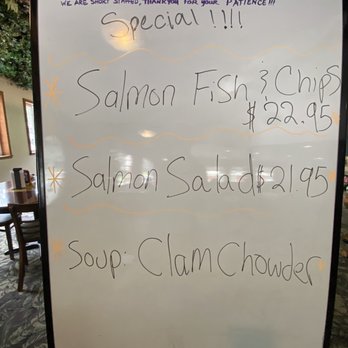 WE ARE SHORT STAFFED, THANKYOU FOR YOUR PATIENCE!!!
Special!!!!
Salmon Fish & Chips
$22.95
Salmon Salad $21.95
Soup: Clam Chowder